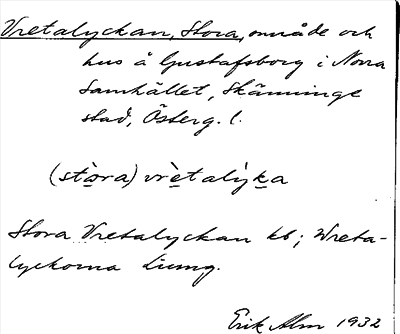 Vretalyckan, Stora, område och
hus å Gustafsborg i Norra
Samhället, Skänninge
stad, Österg. l.
(stòra) vrètalỳka
Stora Vretalyckan kb; Wreta-
lyckorna Ljung.
Erik Alm 1932